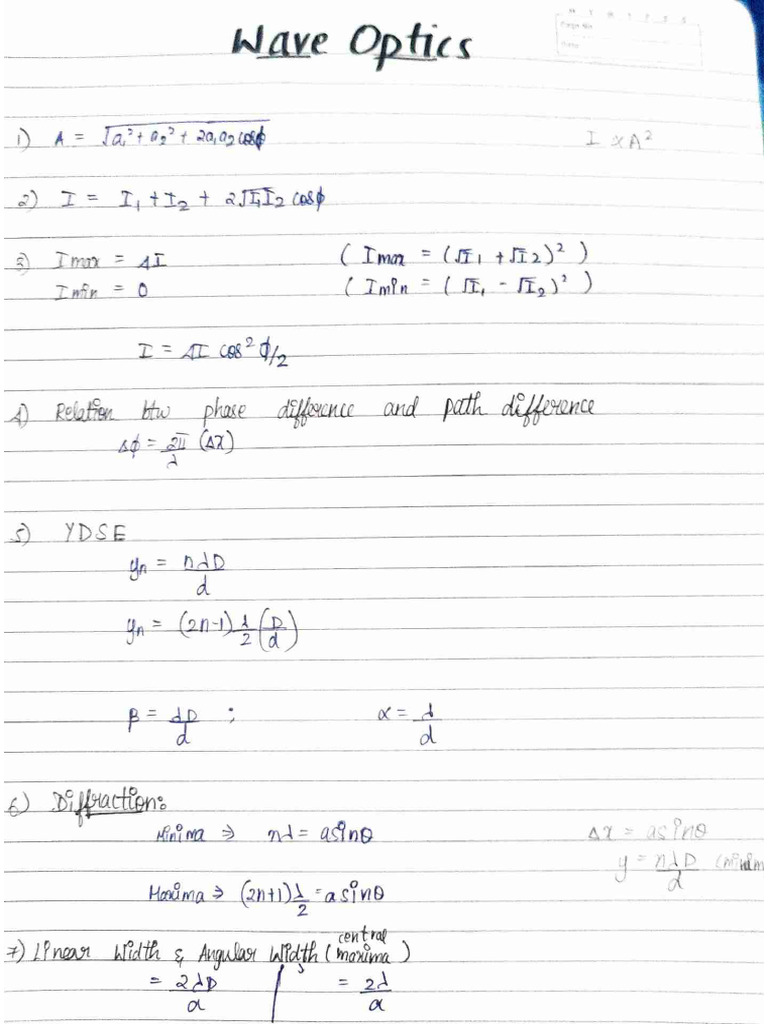 Wave Optics
1) A = √a₁² + a₂² + 2a₁a₂cosϕ I ∝ A²
2) I = I₁ + I₂ + 2√I₁I₂ cosϕ
3) Imax = 4I ( Imax = (√I₁ + √I₂)² )
Imin = 0 ( Imin = (√I₁ - √I₂)² )
I = 4I cos² ϕ/2
4) Relation btw phase difference and path difference
Δϕ = 2π/λ (Δx)
5) YDSE
yₙ = nλD/d
yₙ = (2n-1) λ/2 (D/d)
β = λD/d ; α = λ/d
6) Diffraction:
Minima ⇒ nλ = asinθ Δx = asinθ
y = nλD/d (minim
Maxima ⇒ (2n+1) λ/2 = asinθ
7) Linear Width & Angular Width (central maxima)
= 2λD/a , = 2λ/a